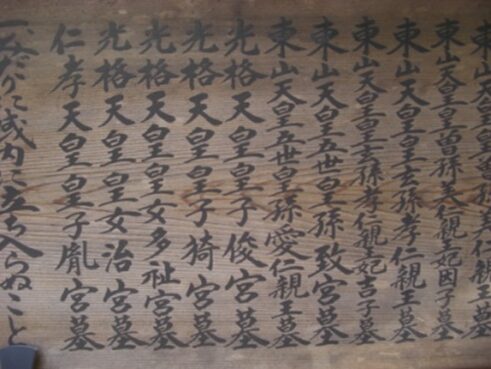 東山天皇皇曽孫美仁親王墓
東山天皇皇曽孫美仁親王妃因子墓
東山天皇皇玄孫孝仁親王墓
東山天皇皇玄孫孝仁親王妃吉子墓
東山天皇五世皇孫致宮墓
東山天皇五世皇孫愛仁親王墓
光格天皇皇子俊宮墓
光格天皇皇子猗宮墓
光格天皇皇女多祉宮墓
光格天皇皇女治宮墓
仁孝天皇皇子胤宮墓
一、みだりに域内に立ち入らぬこと